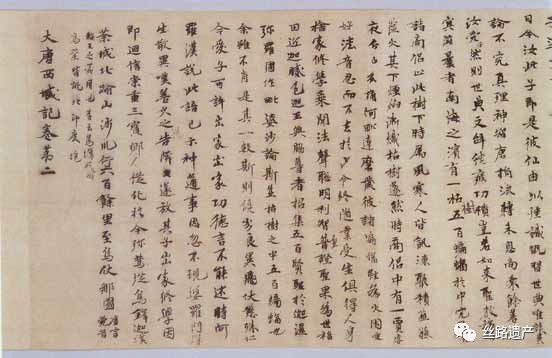 曰今汝此子即是彼仙由以強識習世典唯談異
論不究真理神智唐捐流轉未息尚乘餘善為
汝愛子然則世典文辭徒疲功績豈若如來聖教
冥滋曩者南海之濱有一枯樹五百蝙蝠於中穴
諸商侶止此樹下時属風寒人皆飢凍聚積樵蘇
蘊火其下煙焰漸熾枯樹遂然時商侶中有一賈客
夜分已後誦阿毗達磨藏彼諸蝙蝠雖為火困愛
好法音忍而不去於此命終隨業受生俱得人身
捨家修學乘聞法聲聰明利智並證聖果為世福
田近迦膩色迦王與脇尊者招集五百賢聖於迦濕
弥羅國作毗婆沙論斯並枯樹之中五百蝙蝠也
余雖不肖是其一數斯則優劣良異飛伏懸殊仁
今愛子可許出家出家功德言不能述時阿
羅漢說此語已示神通事因忽不現婆羅門深
生敬異嘆善久之告隣里遂放其子出家修學因
即迴信崇重三寶鄉人從化於今弥篤從烏鐸迦漢
荼城北踰山涉川行六百餘里至烏仗那國唐言苑
大唐西域記卷第二
丝路遗产